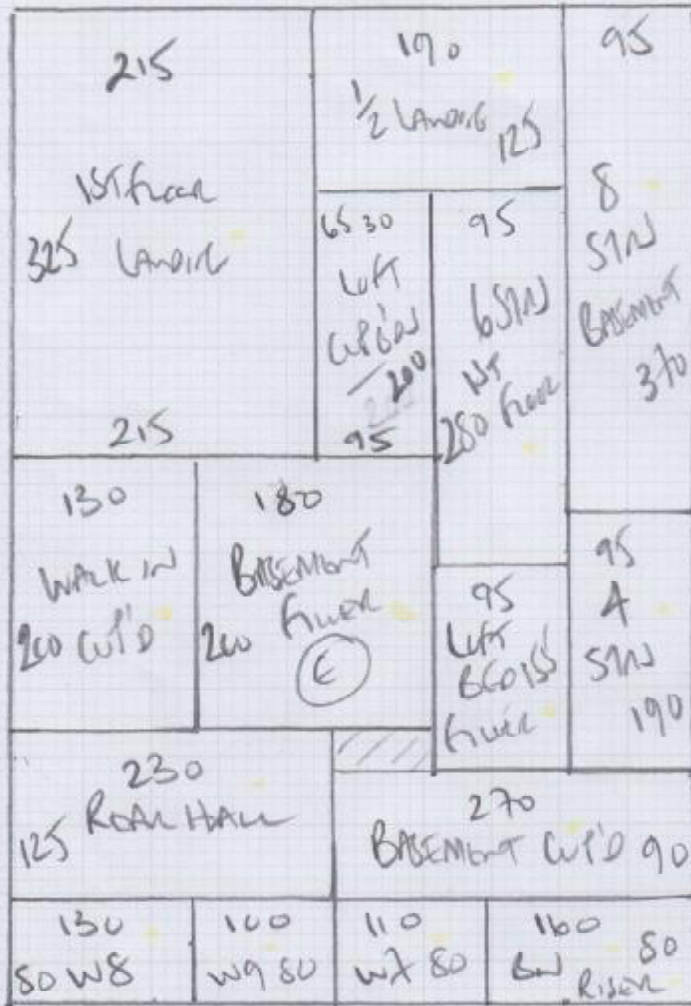 215
1ST FLOOR
325 LANDING
215
190
1/2 LANDING
125
95
8
STRS
BASEMENT
370
65 30
LOFT
CUP'D
200
95
95
6 STRS
1ST
280 FLOOR
130
WALK IN
200 CUP'D
180
BASEMENT
FILLER
200
E
95
LOFT
BED 155
FILLER
95
4
STRS
190
230
REAR HALL
125
270
BASEMENT CUP'D 90
130
80 W8
100
W9 80
110
WX 80
160
80
RISER